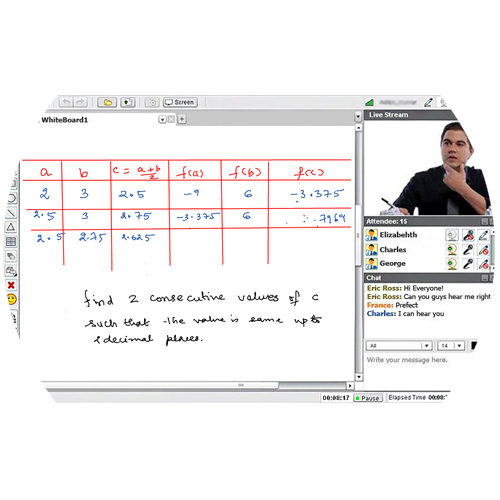 Screen
WhiteBoard1
Live Stream
a b c = a+b/2 f(a) f(b) f(c)
2 3 2.5 -9 6 -3.375
2.5 3 2.75 -3.375 6 .7969
2.5 2.75 2.625
find 2 consecutive values of c
such that the value is same upto
decimal places.
Attendee: 15
Elizabehth
Charles
George
Chat
Eric Ross: Hi Everyone!
Eric Ross: Can you guys hear me right
France: Prefect
Charles: I can hear you
All 14
Write your message here.
00:08:17 Pause Elapsed Time 00:08: